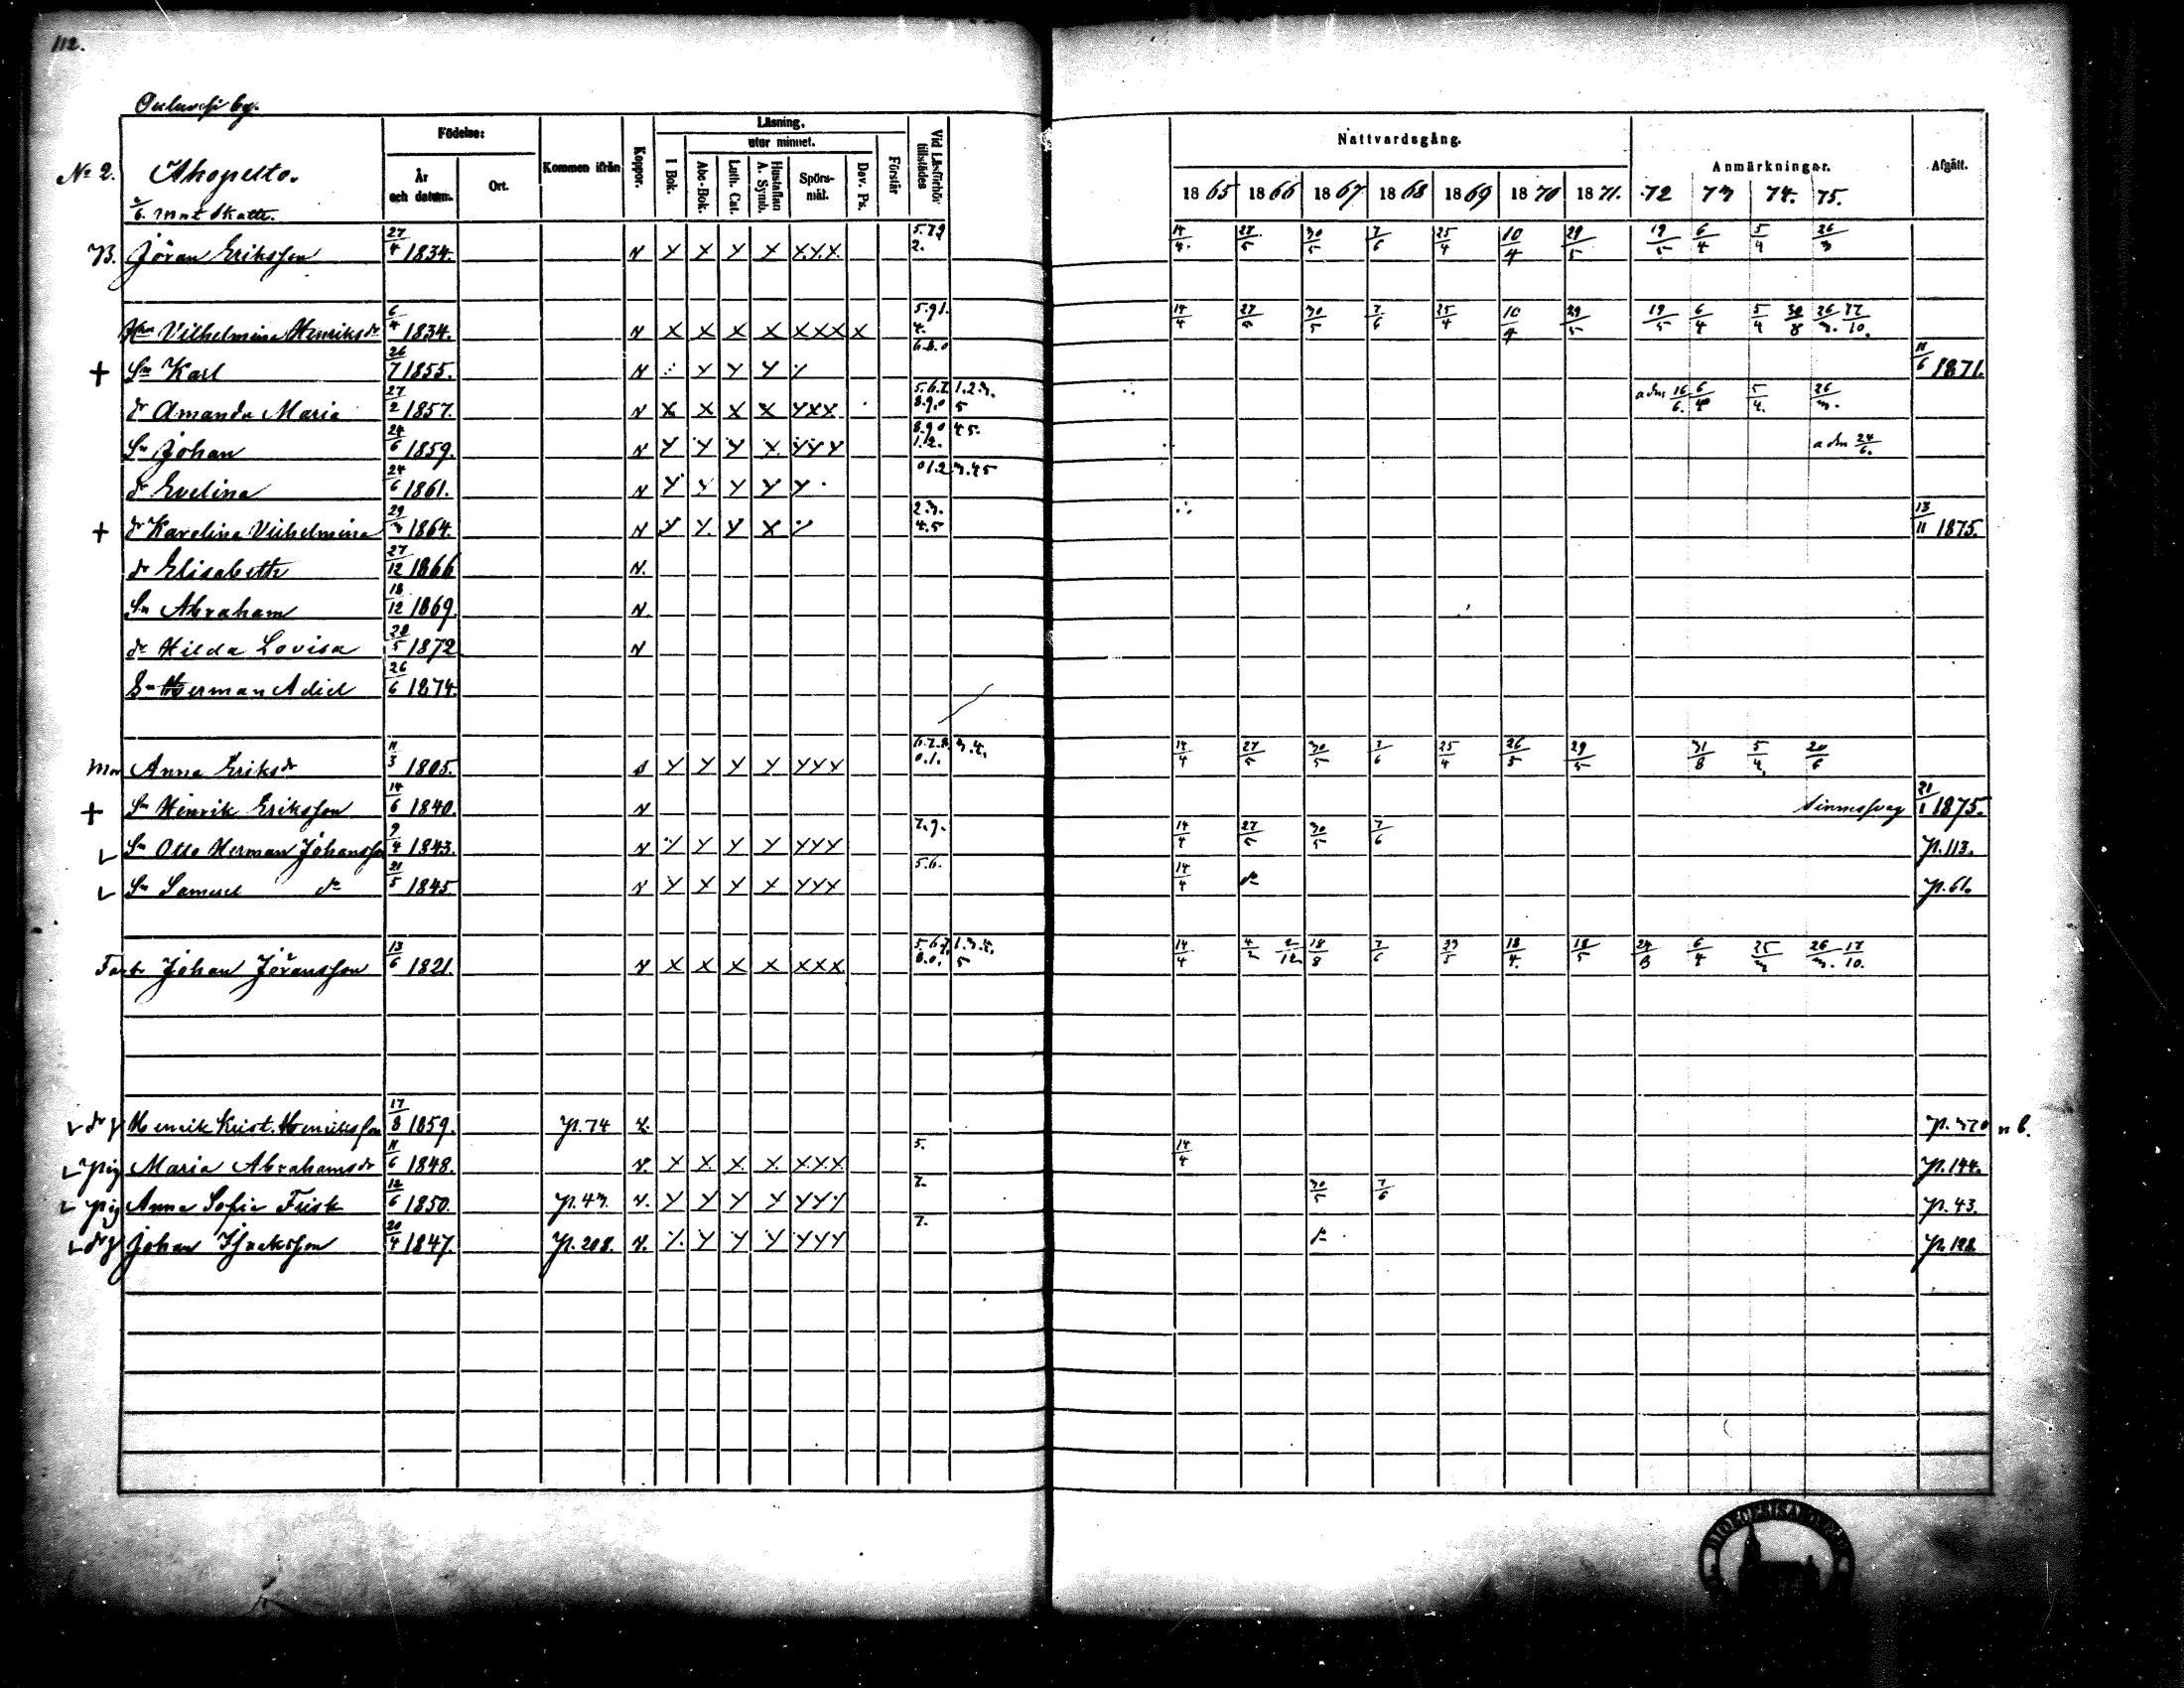 112.
by.
Födelse: Läsning. Nattvardsgång. Anmärkningar. Afgått.
utur minnet.
No 2. Ahopelto. År och datum. Ort. Kommen ifrån Koppor. I Bok. Abc-Bok. Luth. Cat. Hustaflan A. Symb. Spörsmål. Dav. Ps. Förstår Vid Läsförhör tillstädes 1865 1866 1867 1868 1869 1870 1871. 72 73 74. 75.
mnt Skatte.
B. Jöran Eriksson 27/4 1834. v Y X Y X X.X.X. 5.7.9 2. 14/4. 27/5 30/5 7/6 25/4 10/4 29/5 19/5 6/4 5/4 26/3
Hu Vilhelmina Henriksdr 6/4 1834. v X X X X XXX X 5.9.1. 4. 14/4 27/5 30/5 7/6 25/4 10/4 29/5 19/5 6/4 5/4 30/8 26/3. 17/10.
+ Sn Karl 26/7 1855. v Y Y Y 6.8.0 11/6 1871.
dr Amanda Maria 27/2 1857. v X X X X YXX 5.6.7. 8.9.0 1.2.3. 5 adm 16/6. 6/4 5/4. 26/3.
Sn Johan 24/6 1859. v Y Y Y X YYY 8.9.0 1.2. 4.5. adm 24/6.
dr Evelina 24/6 1861. v Y Y Y Y Y 0 1.2 3.4.5
+ dr Karolina Vilhelmina 29/3 1864. v Y Y. Y X 2.3. 4.5 13/11 1875.
dr Elisabeth 27/12 1866 v.
Sn Abraham 18/12 1869. v.
dr Hilda Lovisa 28/5 1872 v
Sn Herman Adiel 26/6 1874.
Mor Anna Eriksdr 11/3 1805. Y Y Y Y YYY 6.7.8. 0.1. 3.4. 14/4 27/5 30/5 7/6 25/4 26/5 29/5 31/8 5/4. 20/6
+ Sn Henrik Eriksson 14/6 1840. v sinnessvag 21/1 1875.
Sn Otto Herman Johansson 9/4 1843. v Y Y Y Y YYY 7.9. 14/4 27/5 30/5 7/6 p. 113.
Sn Samuel do 21/5 1845 v Y X Y X YYX 5.6. 14/4 do p. 61.
Johan Jöransson 13/6 1821. v X X X X XXX 5.6.7. 8.0. 1.3.4. 5 14/4 4/2 2/12 18/8 7/6 23/5 18/4. 18/5 24/8 6/4 25/3 26/3. 17/10.
dr Henrik Krist. Henriksson 17/8 1859. p. 74 v. p. 370 n b.
pig Maria Abrahamsdr 11/6 1848. v. X X X X X.X.X 5. 14/4 p. 144.
pig Anna Sofia Frisk 12/6 1850. p. 43. v. Y Y Y Y YYY 7. 30/5 7/6 p. 43.
dr Johan Isaksson 20/4 1847. p. 208. v. Y. Y Y Y YYY 7. do p. 128.